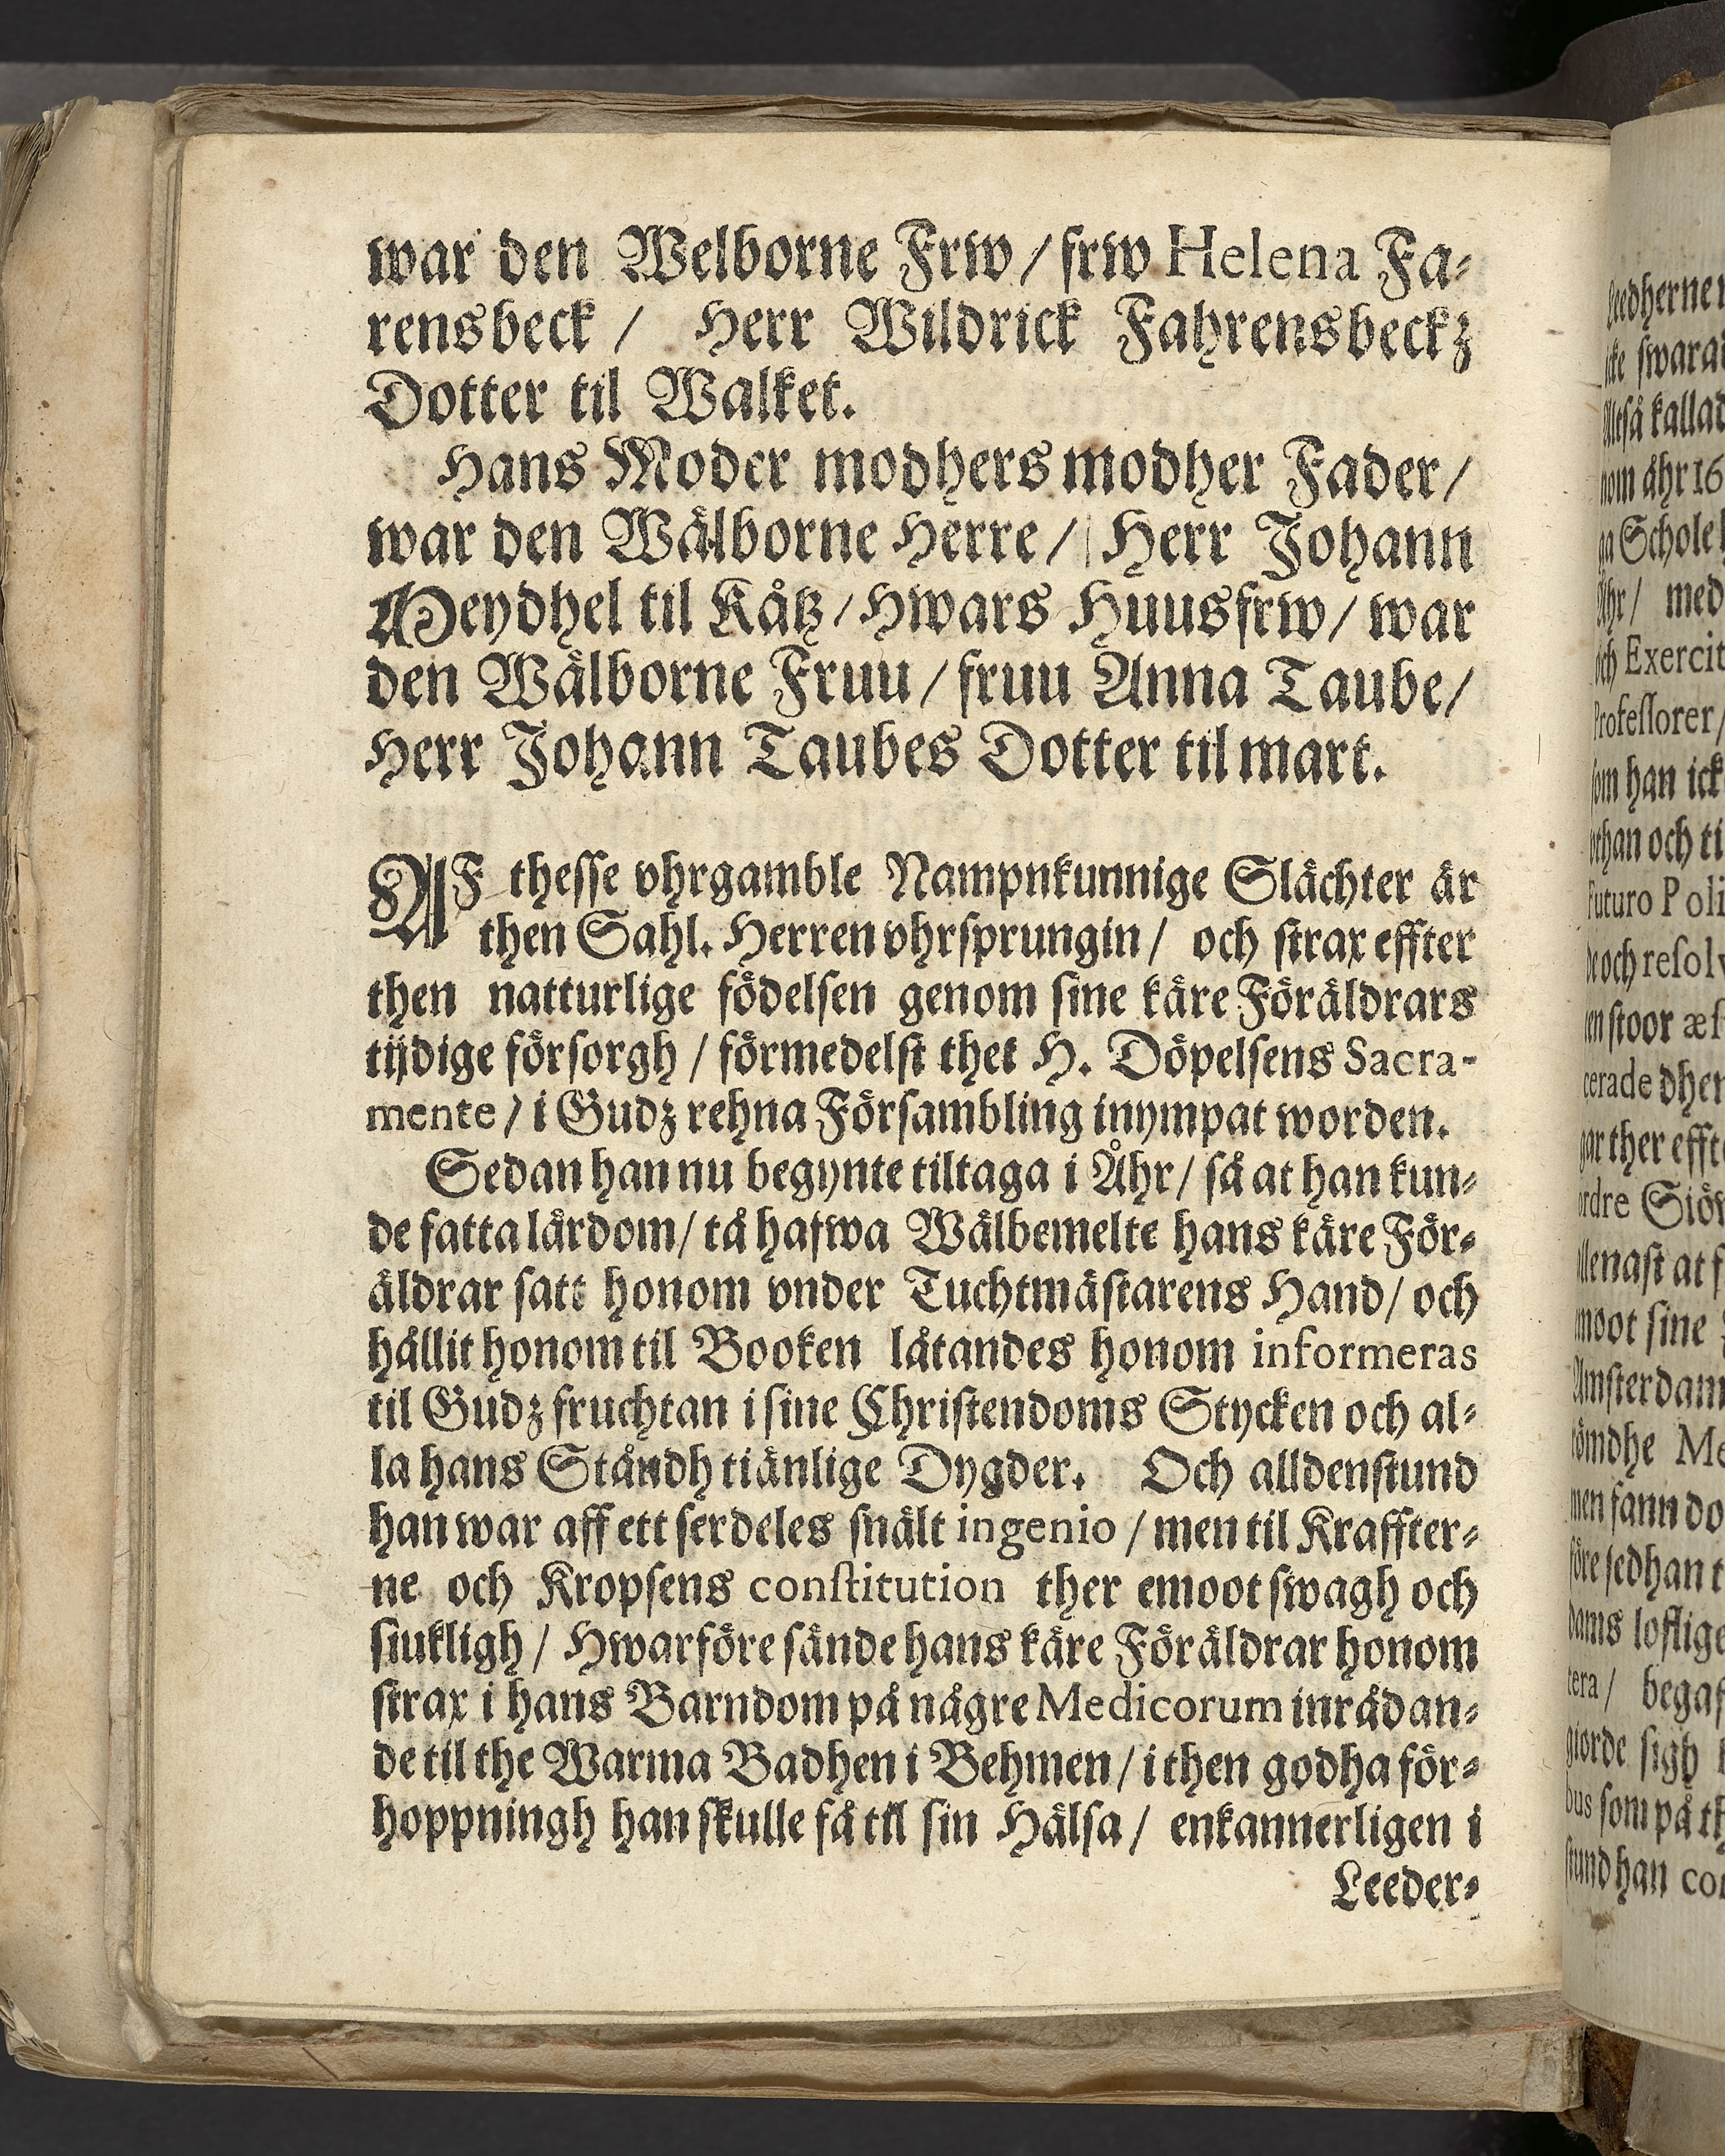 war den Welborne Frw / frw Helena Fa-
rensbeck / Herr Wildrick Fahrensbeckz
Dotter til Walket.
Hans Moder modhers modher Fader /
war den Wälborne Herre / Herr Johann
Meydhel til Kåtz / Hwars Huusfrw / war
den Wälborne Fruu / fruu Anna Taube /
Herr Johann Taubes Dotter til mart.
AF thesse vhrgamble Nampnkunnige Slächter är
then Sahl. Herren vhrsprungin / och strax effter
then natturlige födelsen genom sine käre Föräldrars
tijdige försorgh / förmedelst thet H. Döpelsens Sacra-
mente / i Gudz rehna Försambling inympat worden.
Sedan han nu begynte tiltaga i Åhr / så at han kun-
de fatta lärdom / tå hafwa Wälbemelte hans käre För-
äldrar satt honom vnder Tuchtmästarens Hand / och
hållit honom til Booken låtandes honom informeras
til Gudz fruchtan i sine Christendoms Stycken och al-
la hans Ståndh tiänlige Dygder. Och alldenstund
han war aff ett serdeles snält ingenio / men til Kraffter-
ne och Kropsens constitution ther emoot swagh och
siukligh / Hwarföre sände hans käre Föräldrar honom
strax i hans Barndom på någre Medicorum inrådan-
de til the Warma Badhen i Behmen / i then godha för-
hoppningh han skulle få til sin Hälsa / enkannerligen i
Leeder-
swara
kallad
nom åhr 16
Schole
med
och Exercit
Professorer /
som han ick
och ti
Futuro Poli
de och resolv
stoor
cerade dher
ther effte
at f
moot sine
Amsterdam
Me
men fann do
före sedhan t
loflige
tera / begaf
giorde sigh
som på th
stund han con